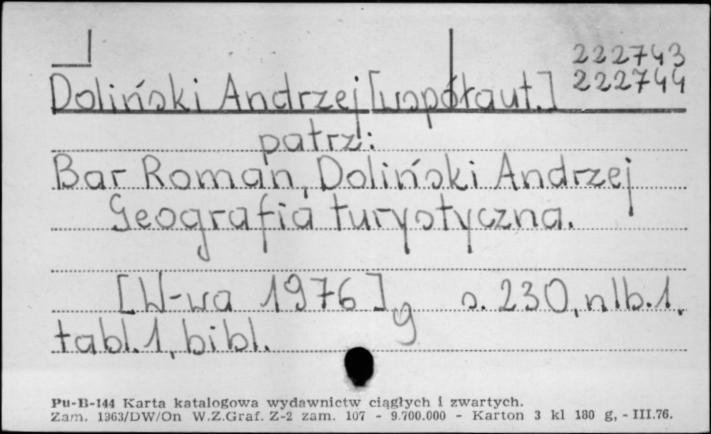 222743
Doliński Andrzej [współaut.] 222744
patrz:
Bar Roman, Doliński Andrzej
Geografia turystyczna.
[W-wa 1976] g s. 230, nlb. 1,
tabl. 1, bibl.
Pu-B-144 Karta katalogowa wydawnictw ciągłych i zwartych.
Zam. 1363/DW/On W.Z.Graf. Z-2 zam. 107 - 9.700.000 - Karton 3 kl 180 g, - III.76.